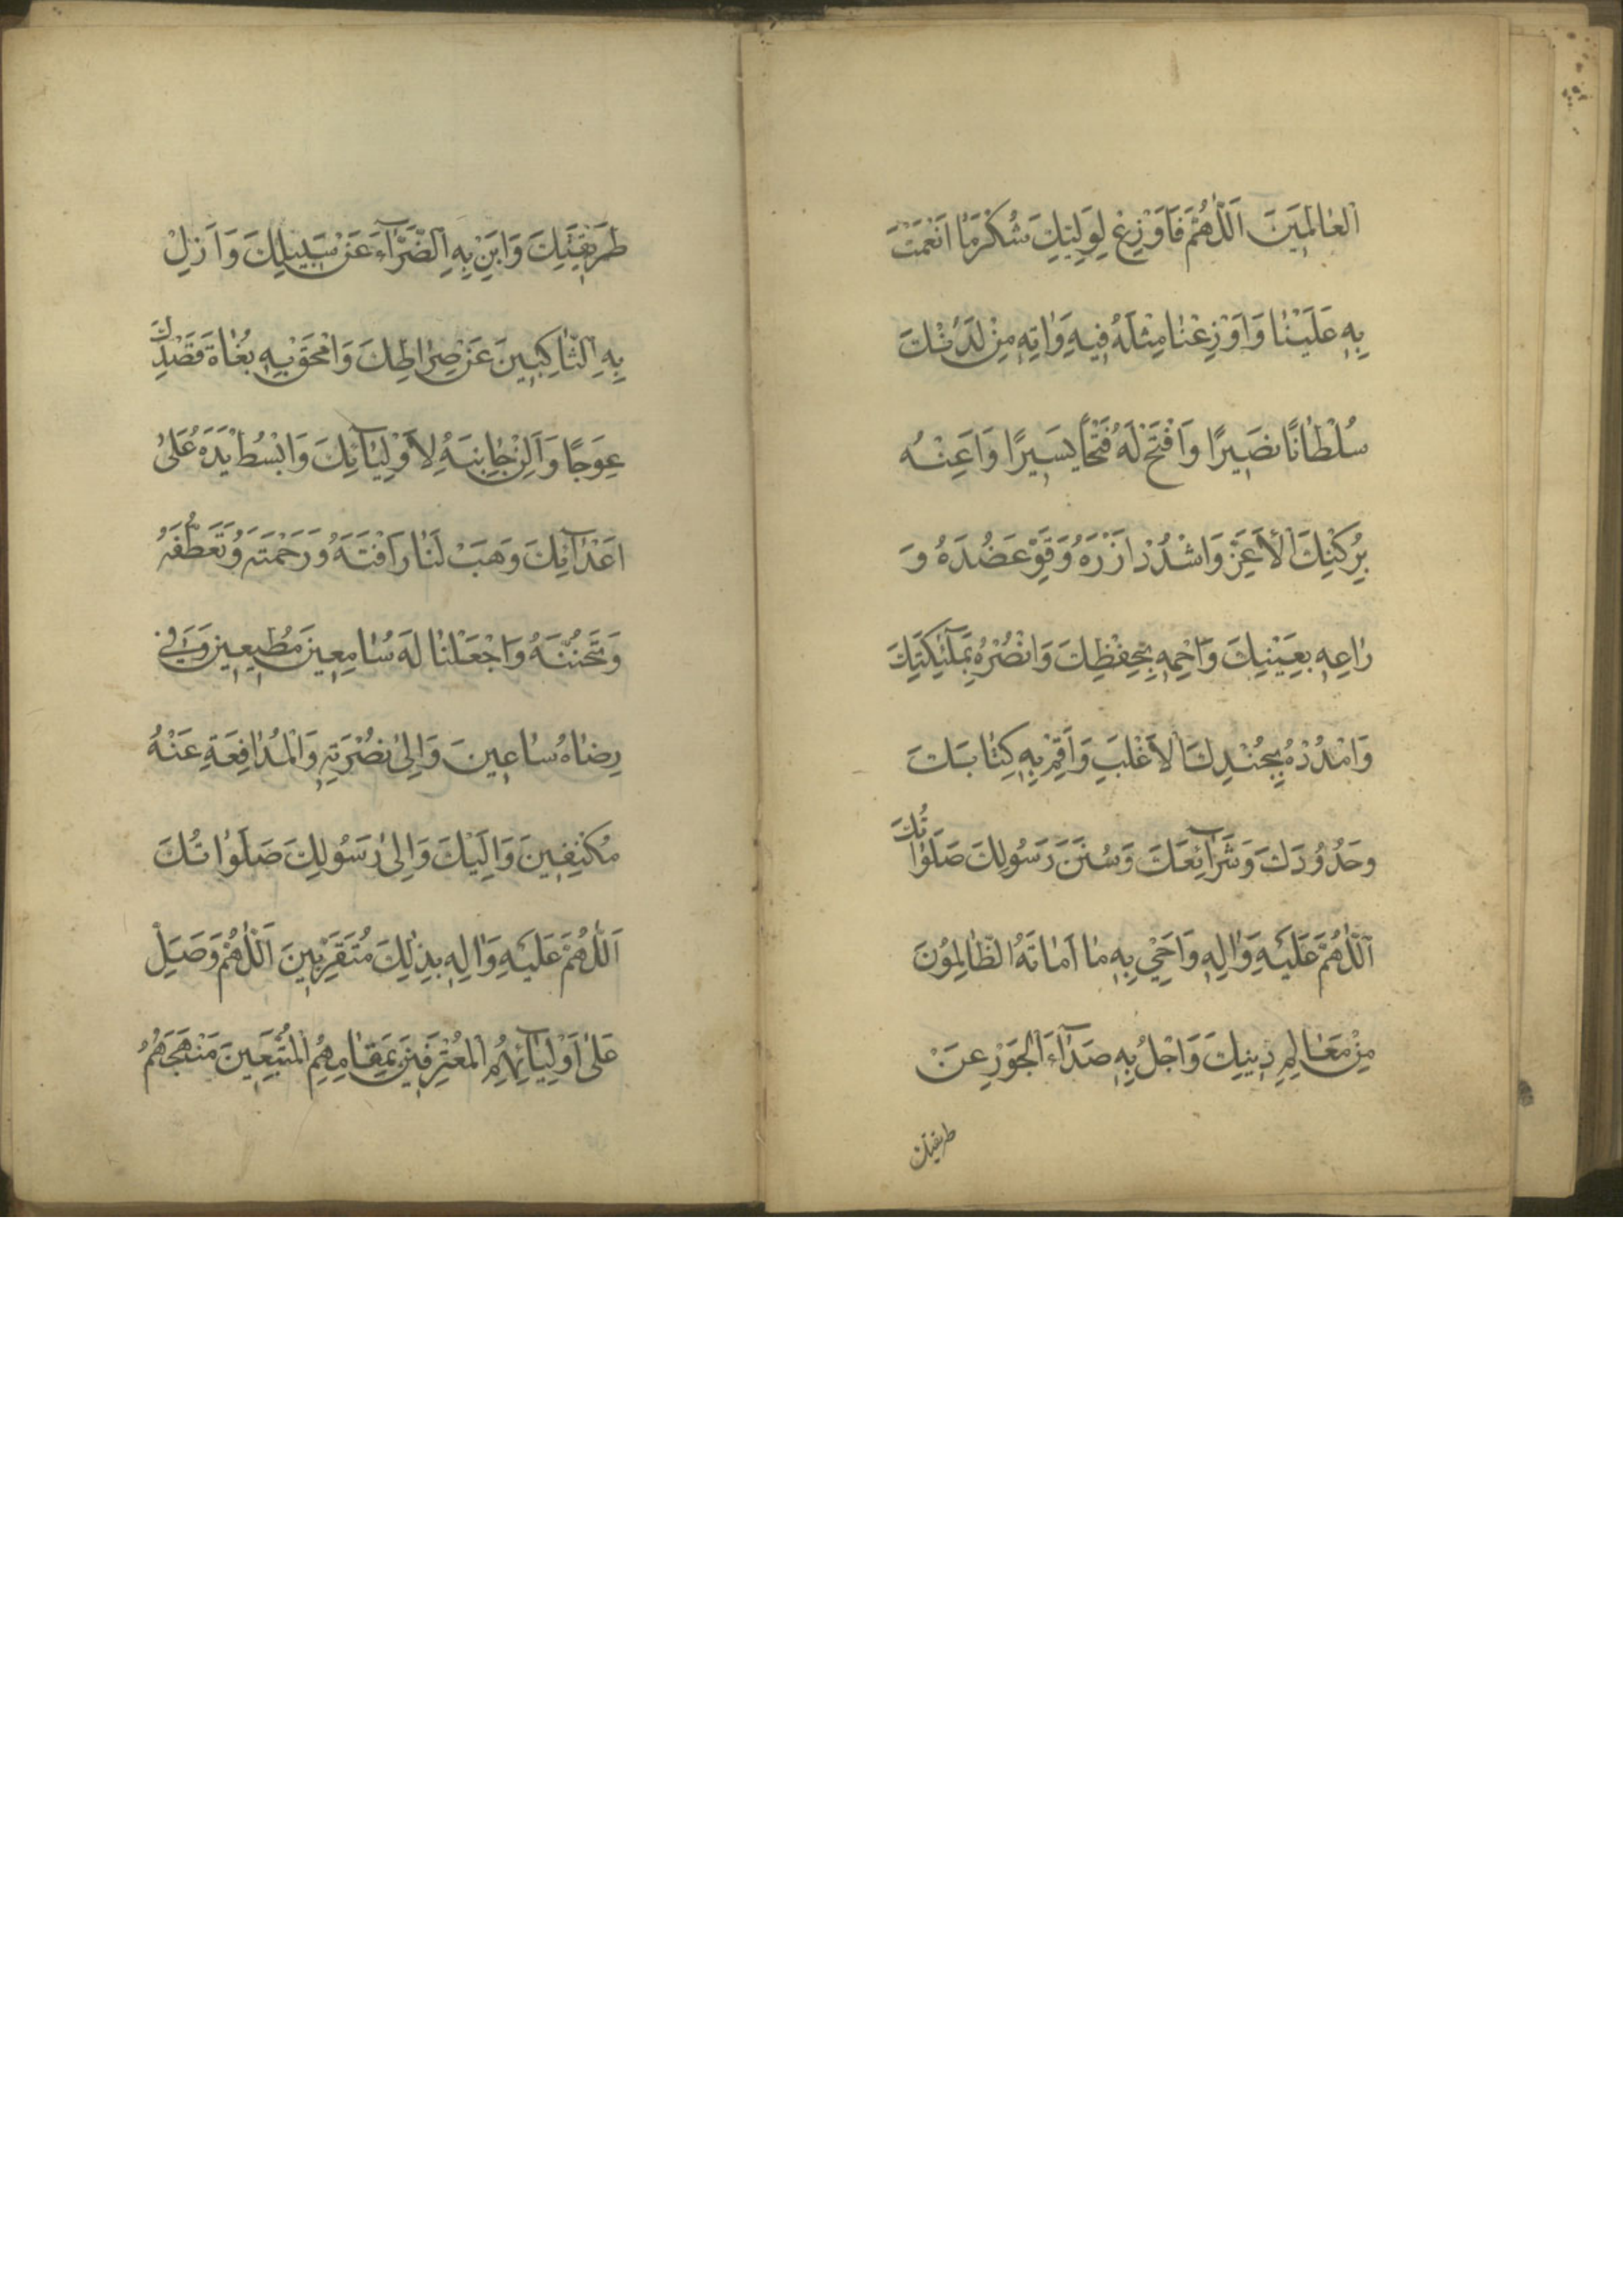 الْعالَمِينَ اَللّٰهُمَّ فَاَوْزِعْ لِوَلِيِّكَ شُكْرَ مٰا اَنْعَمْتَ
بِهِ عَلَيْنٰا وَاَوْزِعْنٰا مِثْلَهُ فِيهِ وَاٰتِهِ مِنْ لَدُنْكَ
سُلْطٰانًا نَصِيرًا وَافْتَحْ لَهُ فَتْحًا يَسِيرًا وَاَعِنْهُ
بِرُكْنِكَ الْاَعَزِّ وَاشْدُدْ اَزْرَهُ وَقَوِّ عَضُدَهُ وَ
رٰاعِهِ بِعَيْنِكَ وَاحْمِهِ بِحِفْظِكَ وَانْصُرْهُ بِمَلٰٓئِكَتِكَ
وَامْدُدْهُ بِجُنْدِكَ الْاَغْلَبِ وَاَقِمْ بِهِ كِتٰابَكَ
وَحُدُودَكَ وَشَرٰآئِعَكَ وَسُنَنَ رَسُولِكَ صَلَوٰاتُكَ
اَللّٰهُمَّ عَلَيْهِ وَاٰلِهِ وَاَحْيِ بِهِ مٰا اَمٰاتَهُ الظّٰالِمُونَ
مِنْ مَعٰالِمِ دِينِكَ وَاجْلُ بِهِ صَدٰٓاءَ الْجَوْرِ عَنْ
طريقتك
طَرِيقَتِكَ وَاَبِنْ بِهِ الضَّرّٰٓاءَ عَنْ سَبِيلِكَ وَاَزِلْ
بِهِ النّٰاكِبِينَ عَنْ صِرٰاطِكَ وَامْحَقْ بِهِ بُغٰاةَ قَصْدِكَ
عِوَجًا وَاَلِنْ جٰانِبَهُ لِاَوْلِيٰآئِكَ وَابْسُطْ يَدَهُ عَلىٰ
اَعْدٰآئِكَ وَهَبْ لَنٰا رَاْفَتَهُ وَرَحْمَتَهُ وَتَعَطُّفَهُ
وَتَحَنُّنَهُ وَاجْعَلْنٰا لَهُ سٰامِعِينَ مُطِيعِينَ وَفِي
رِضٰاهُ سٰاعِينَ وَاِلىٰ نُصْرَتِهِ وَالْمُدٰافَعَةِ عَنْهُ
مُكْنِفِينَ وَاِلَيْكَ وَاِلىٰ رَسُولِكَ صَلَوٰاتُكَ
اَللّٰهُمَّ عَلَيْهِ وَاٰلِهِ بِذٰلِكَ مُتَقَرِّبِينَ اَللّٰهُمَّ وَصَلِّ
عَلىٰ اَوْلِيٰآئِهِمُ الْمُعْتَرِفِينَ بِمَقٰامِهِمُ الْمُتَّبِعِينَ مَنْهَجَهُمُ